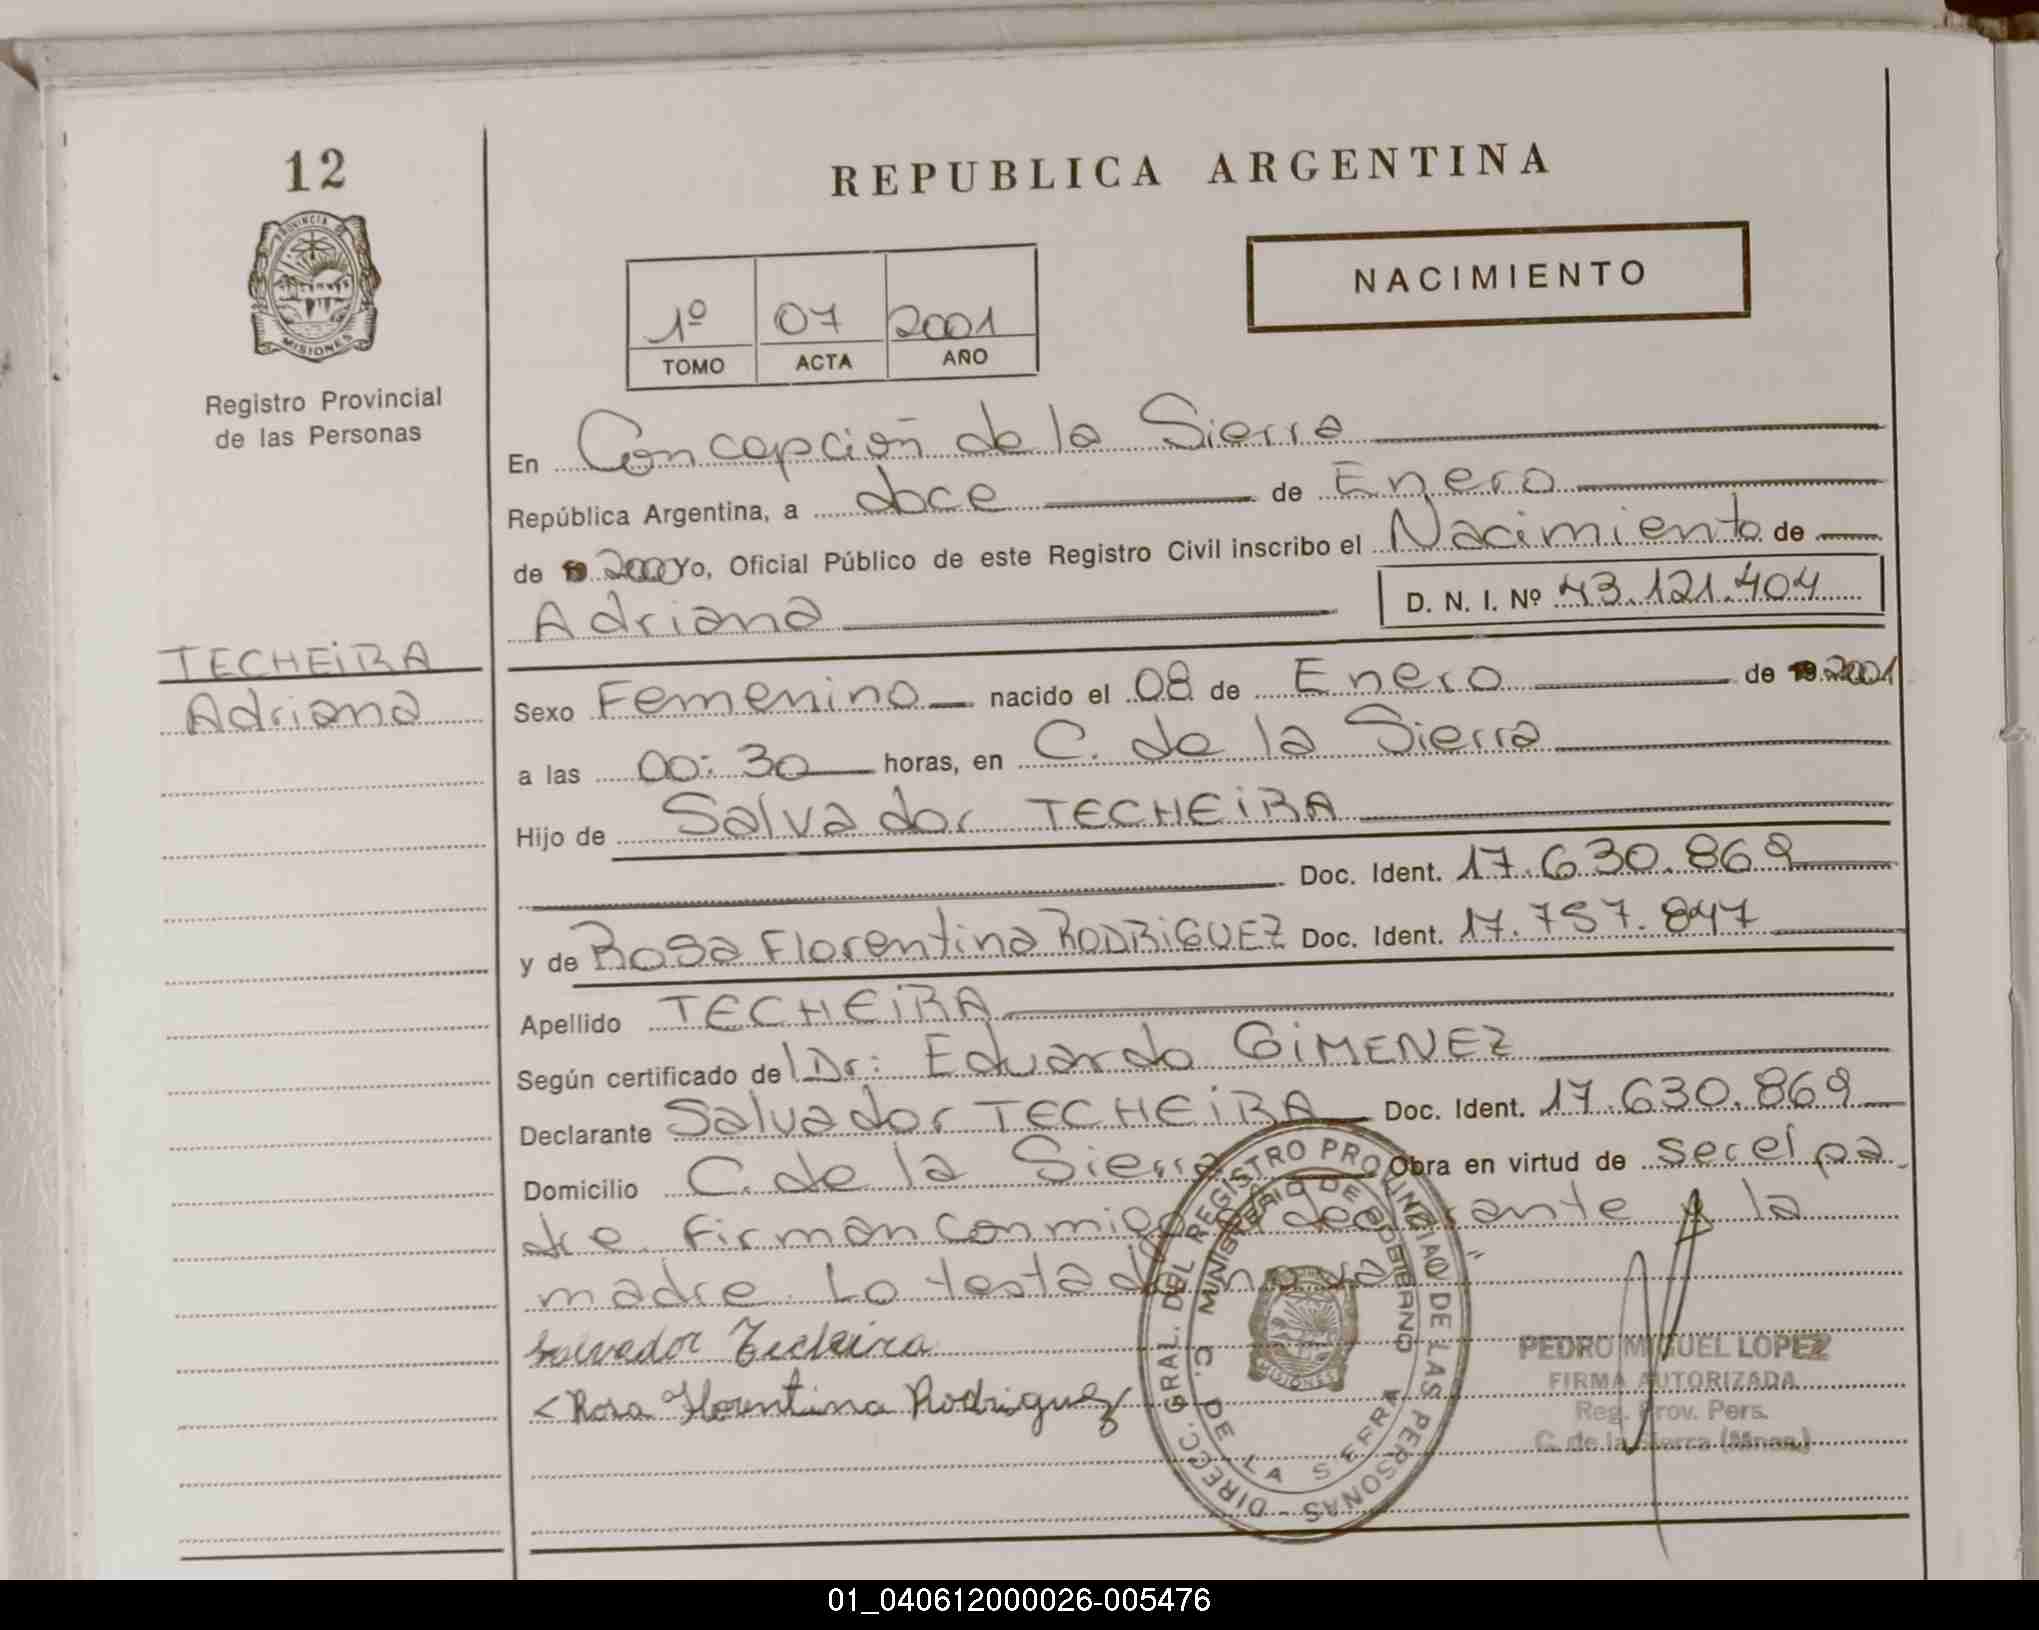 12
REPUBLICA ARGENTINA
PROVINCIA DE
MISIONES
NACIMIENTO
1º 07 2001
TOMO ACTA AÑO
Registro Provincial
de las Personas
En Concepción de la Sierra
República Argentina, a doce de Enero
de 19 2001 Yo, Oficial Público de este Registro Civil inscribo el Nacimiento de
Adriana D. N. I. Nº 43.121.404
TECHEiRA
Adriana
Sexo Femenino nacido el 08 de Enero de 19 2001
a las 00:30 horas, en C. de la Sierra
Hijo de Salvador TECHEiRA
Doc. Ident. 17.630.869
y de Rosa Florentina RODRiGUEZ Doc. Ident. 17.757.847
Apellido TECHEiRA
Según certificado de Dr: Eduardo GiMENEZ
Declarante Salvador TECHEiRA Doc. Ident. 17.630.869
Domicilio C. de la Sierra Obra en virtud de ser el pa
dre. Firman conmigo el declarante y la
madre. Lo testado no vale
Salvador Techeira
Rosa Florentina Rodriguez
DIRECC. GRAL. DEL REGISTRO PROVINCIAL DE LAS PERSONAS
MINISTERIO DE GOBIERNO
C. DE LA SIERRA
MISIONES
PEDRO MIGUEL LOPEZ
FIRMA AUTORIZADA
Reg. Prov. Pers.
C. de la Sierra (Mnes.)
01_040612000026-005476